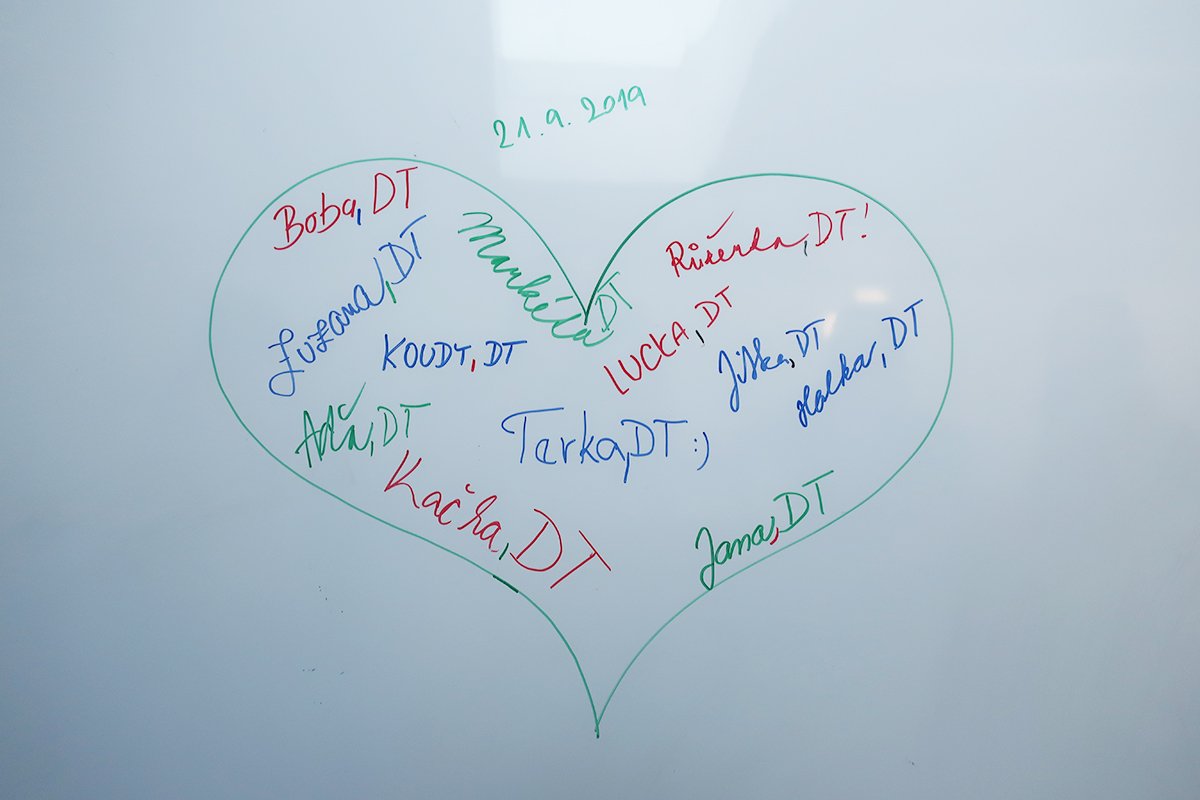 21.9.2019
Boba, DT
Markéta DT
Růženka, DT!
Zuzana, DT
KOUDY, DT
LUCKA, DT
Jitka, DT
Halka, DT
Adča, DT
Terka, DT :)
Kačka, DT
Jana, DT